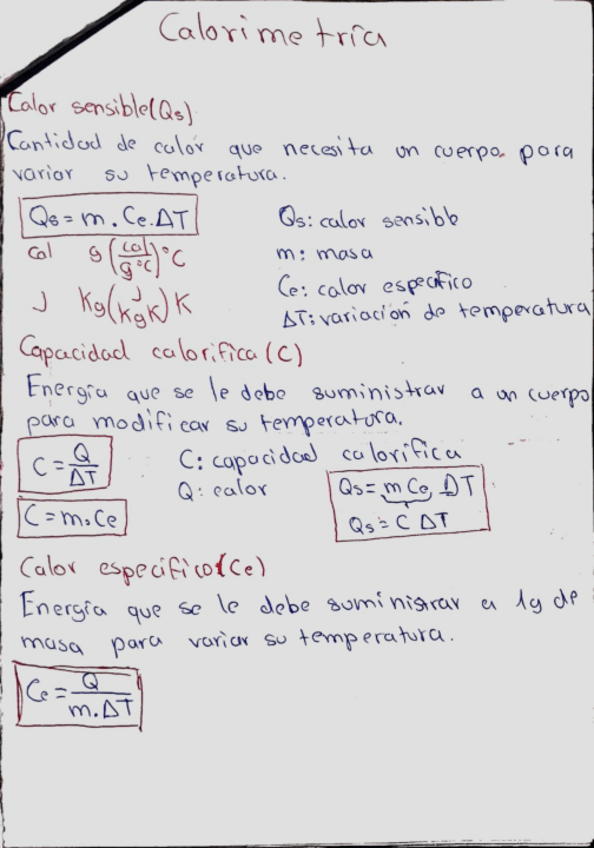 Calorimetría
Calor sensible(Qs)
Cantidad de calor que necesita un cuerpo para
variar su temperatura.
Qs = m . Ce . ΔT
Qs: calor sensible
cal g (cal/g°C) °C
m: masa
Ce: calor especifico
J Kg (J/KgK) K
ΔT: variación de temperatura
Capacidad calorifica (C)
Energía que se le debe suministrar a un cuerpo
para modificar su temperatura.
C = Q/ΔT
C: capacidad calorifica
Q: calor
Qs = m Ce ΔT
C = m . Ce
Qs = C ΔT
Calor especifico (Ce)
Energía que se le debe suministrar a 1g de
masa para variar su temperatura.
Ce = Q/m.ΔT